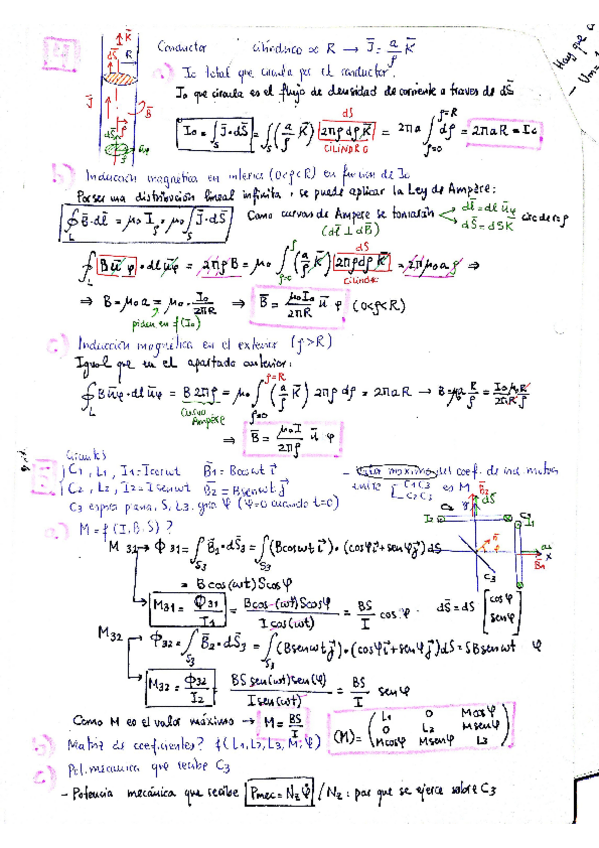 4
Conductor cilíndrico ∞ R → J̄ = a/ρ K̄
a) Io total que circula por el conductor.
Io que circula es el flujo de densidad de corriente a traves de dS̄
Io = ∫_S J̄·dS̄ = ∫_S (a/ρ K̄) 2πρdρK̄ = 2πa ∫_{ρ=0}^{ρ=R} dρ = 2πaR = Io
dS
CILINDRO
b) Inducción magnética en interior (0<ρ<R) en función de Io
Por ser una distribución lineal infinita, se puede aplicar la Ley de Ampère:
∮_L B̄·dl̄ = μo Iρ = μo ∫_S J̄·dS̄ Como curvas de Ampere se tomarán dl̄ = dl ūφ circ de r ρ
dS̄ = dS K̄
(dl̄ ⊥ dB̄)
∮_L B ūφ · dl ūφ = 2πρB = μo ∫_{ρ=0}^{ρ} (a/ρ K̄) 2πρdρK̄ = 2πμo a ρ ⇒
dS
CILINDRO
⇒ B = μo a = μo · Io/2πR ⇒ B̄ = μo Io/2πR ūφ (0<ρ<R)
piden en f(Io)
c) Inducción magnética en el exterior (ρ>R)
Igual que en el apartado anterior:
∮_L B ūφ · dl ūφ = B 2πρ = μo ∫_{ρ=0}^{ρ=R} (a/ρ K̄) 2πρ dρ = 2πaR → B = aμo R/ρ = Io μo R/2πR ρ
Curva Ampère
⇒ B̄ = μo I/2πρ ūφ
5
Circuitos
C1, L1, I1 = I cos ωt B̄1 = B cos ωt i⃗
C2, L2, I2 = I sen ωt B̄2 = B sen ωt j⃗
C3 espira plana, S, L3, gira φ (φ=0 cuando t=0)
- Valor máximo del coef. de ind mutua
entre C1C3 es M
C2C3
a) M = f(I, B, S)?
M31 → Φ31 = ∫_{S3} B̄1·dS̄3 = ∫_{S3} (B cos ωt i⃗)·(cos φ i⃗ + sen φ j⃗) dS
= B cos(ωt) S cos φ
M31 = Φ31/I1 = B cos(ωt) S cos φ / I cos(ωt) = BS/I cos φ dS̄ = dS [cos φ
sen φ]
M32 → Φ32 = ∫_{S3} B̄2·dS̄3 = ∫_{S3} (B sen ωt j⃗)·(cos φ i⃗ + sen φ j⃗) dS = SB sen ωt φ
M32 = Φ32/I2 = BS sen(ωt) sen(φ) / I sen(ωt) = BS/I sen φ
Como M es el valor máximo → M = BS/I
(M) = (L1 0 M cos φ
0 L2 M sen φ
M cos φ M sen φ L3)
b) Matriz de coeficientes? f(L1, L2, L3, M, φ)
c) Pot. mecánica que recibe C3
- Potencia mecánica que recibe Pmec = Nz φ̇ / Nz: par que se ejerce sobre C3